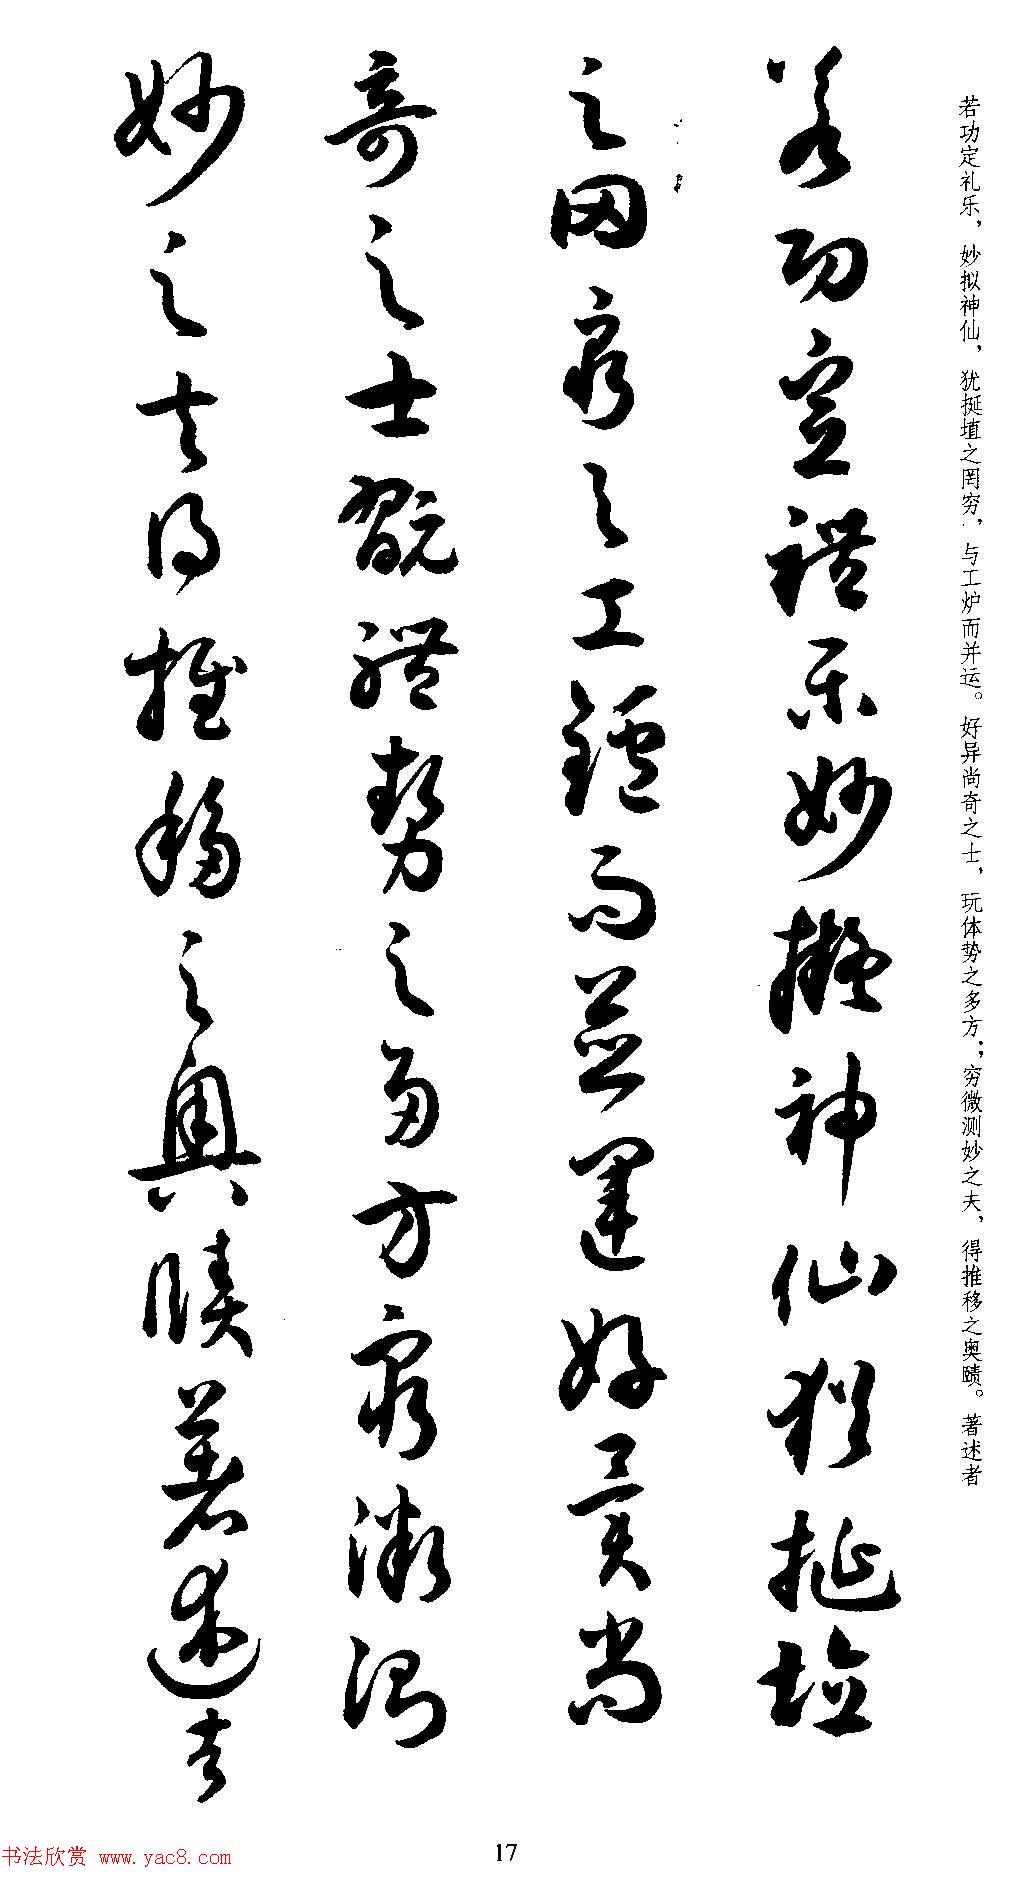 若功定礼乐，妙拟神仙，犹挻埴之罔穷，与工炉而并运。好异尚奇之士，玩体势之多方；穷微测妙之夫，得推移之奥赜。著述者
若功定禮乐妙擬神仙猶挻埴
之罔窮之工鑪而並運好異尚
奇之士翫體勢之多方窮微測
妙之夫得推移之奥賾著述者
17
书法欣赏 www.yac8.com